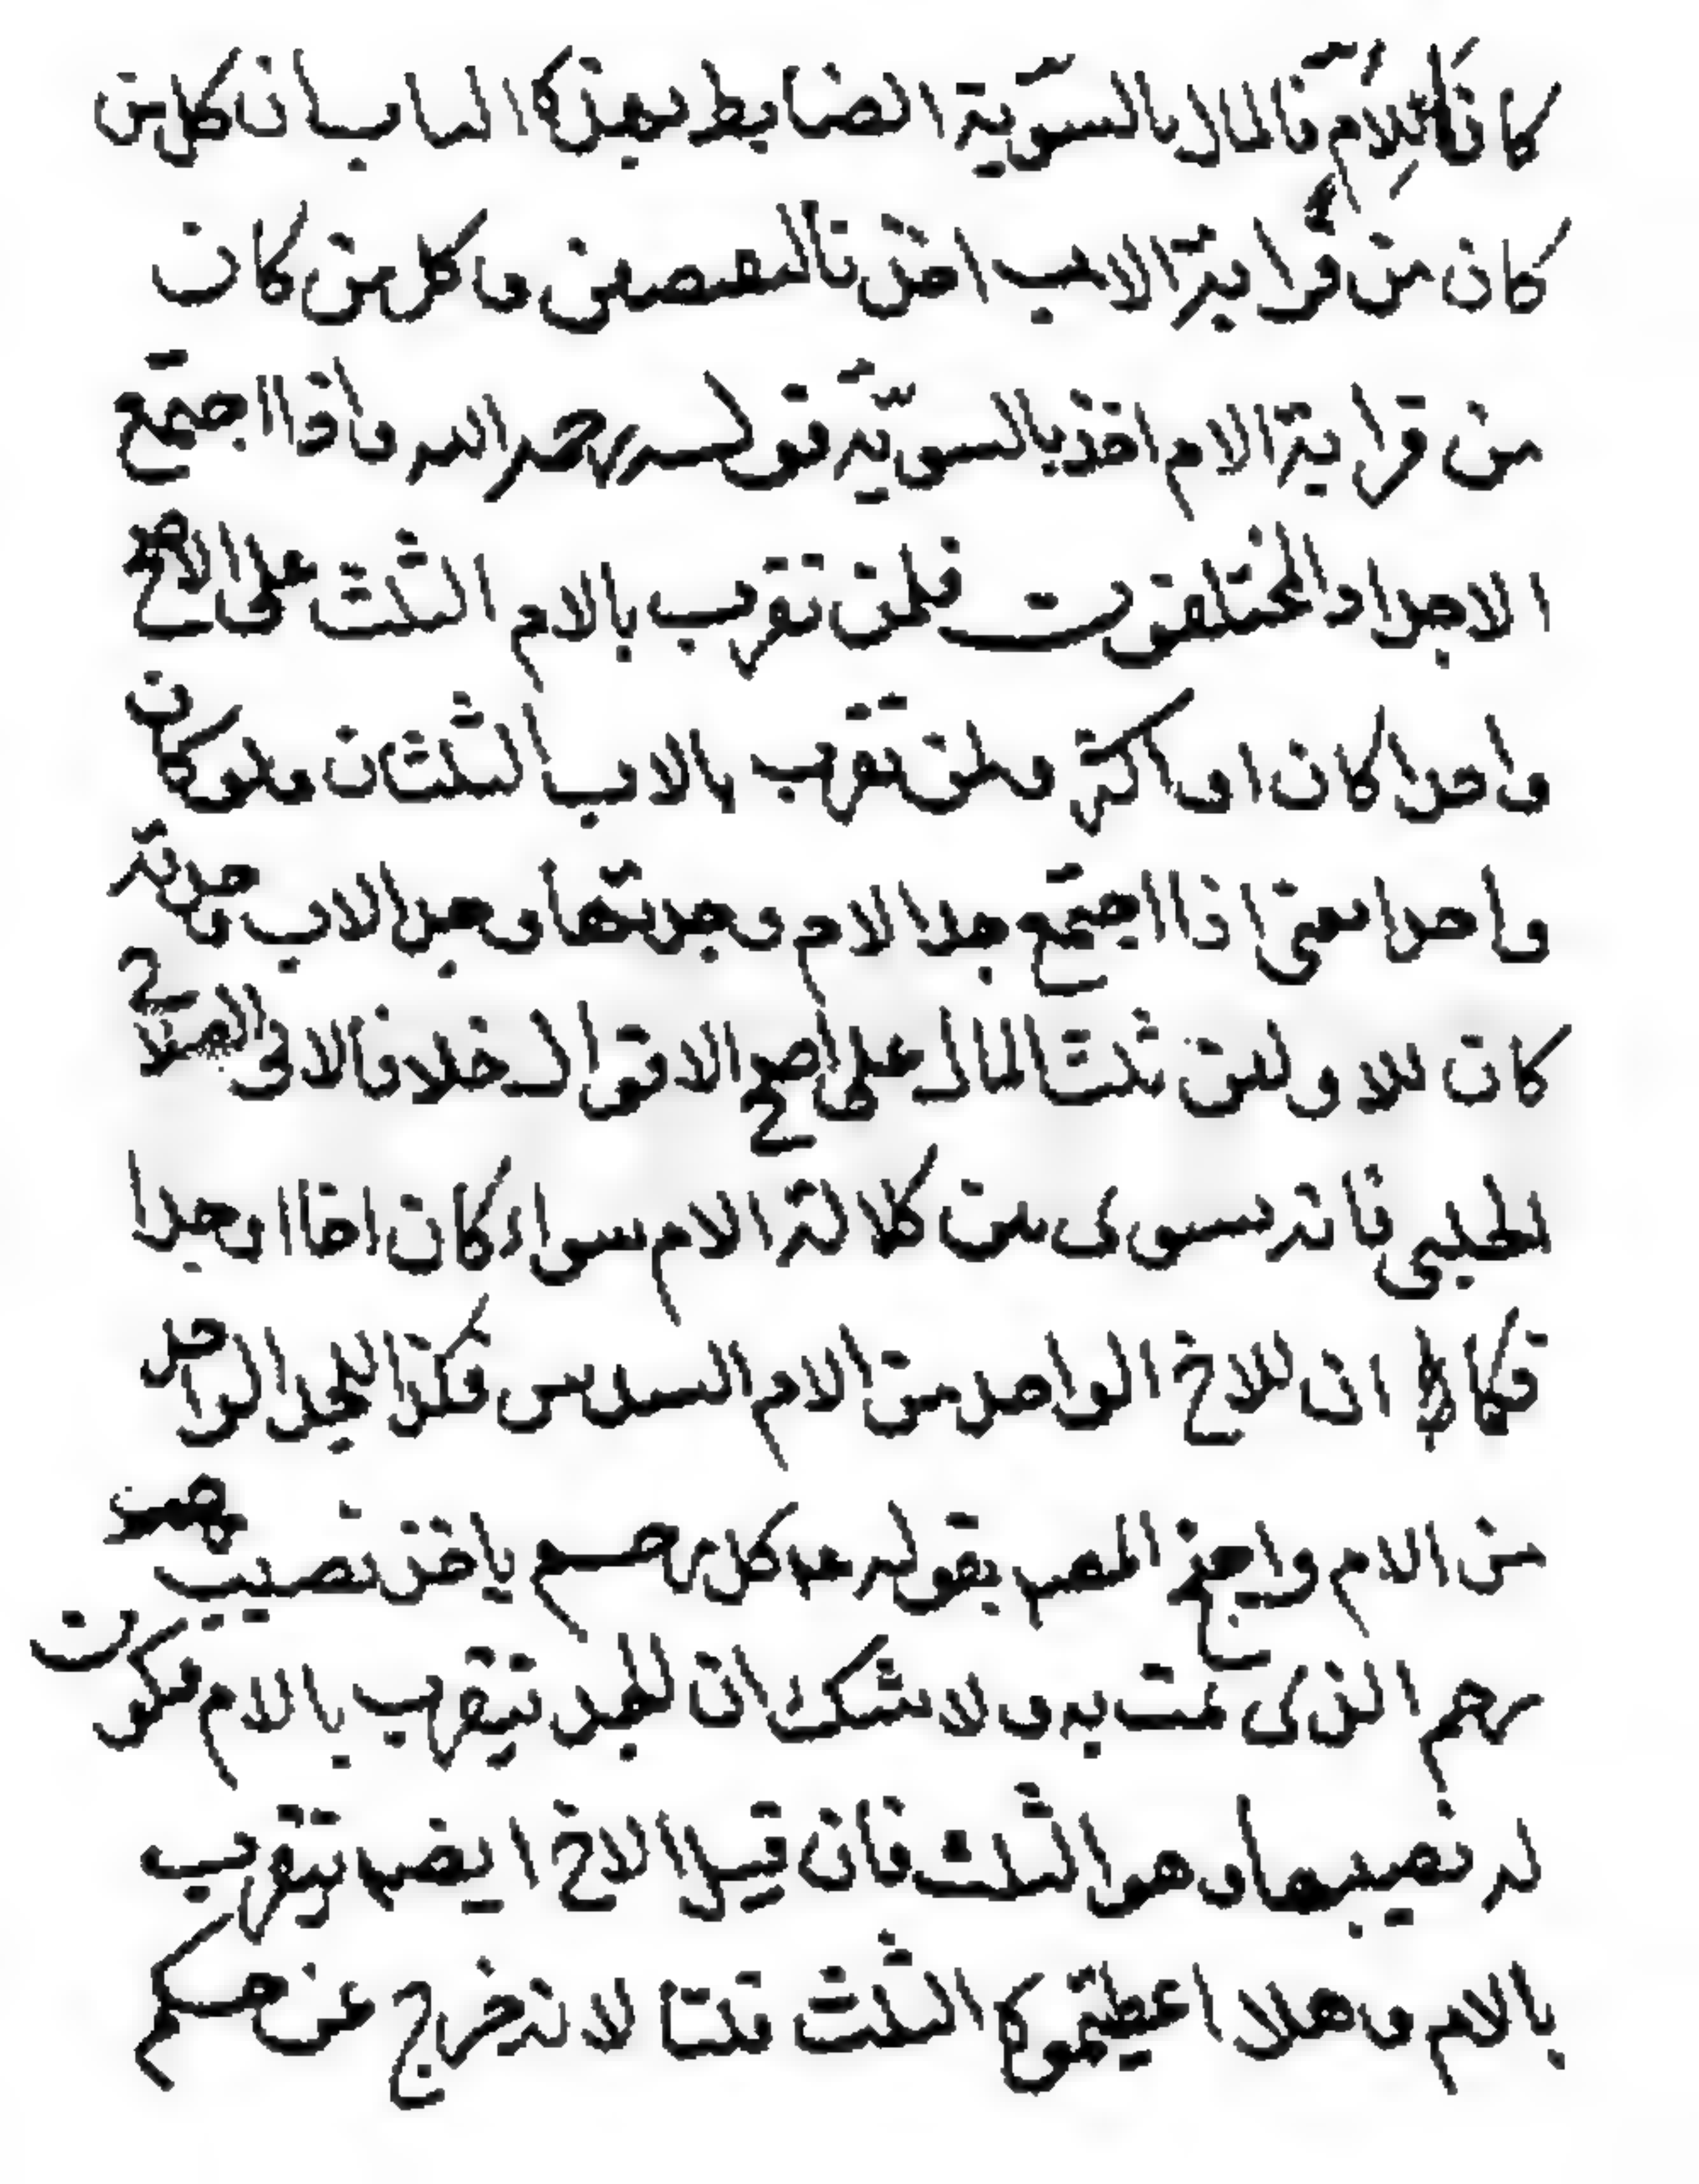 كانا للام فالمال بالسوية الضابط بهذا الباب ان كل من
كان من قرابة الاب اخذ بالتفصيل وكل من كان
من قرابة الام اخذ بالسوية قوله رحمه الله واذا اجتمع
الاجداد المختلفون فلمن تقرب بالام الثلث على الاصح
واحدا كان او اكثر ولمن تقرب بالاب الثلثان ولو كان
واحدا يعني اذا اجتمع جد الام وجدتها وجد الاب وجدته
كان للاولين ثلث المال على اصح الاقوال خلافا لابي الصلاح
الحلبي فانه يسوى بين كلالة الام سواء كان اخا او جدا
فكما ان للاخ الواحد من الام السدس فكذا للجد الواحد
من الام واحتج المص بقوله ع كل رحم ياخذ نصيب
رحم الذي يمت به ولا شك ان للجد يتقرب بالام فيكون
له نصيبها وهو الثلث فان قيل الاخ ايضا يتقرب
بالام وهلا اعطيتموه الثلث قلنا لانه خرج عن حكم